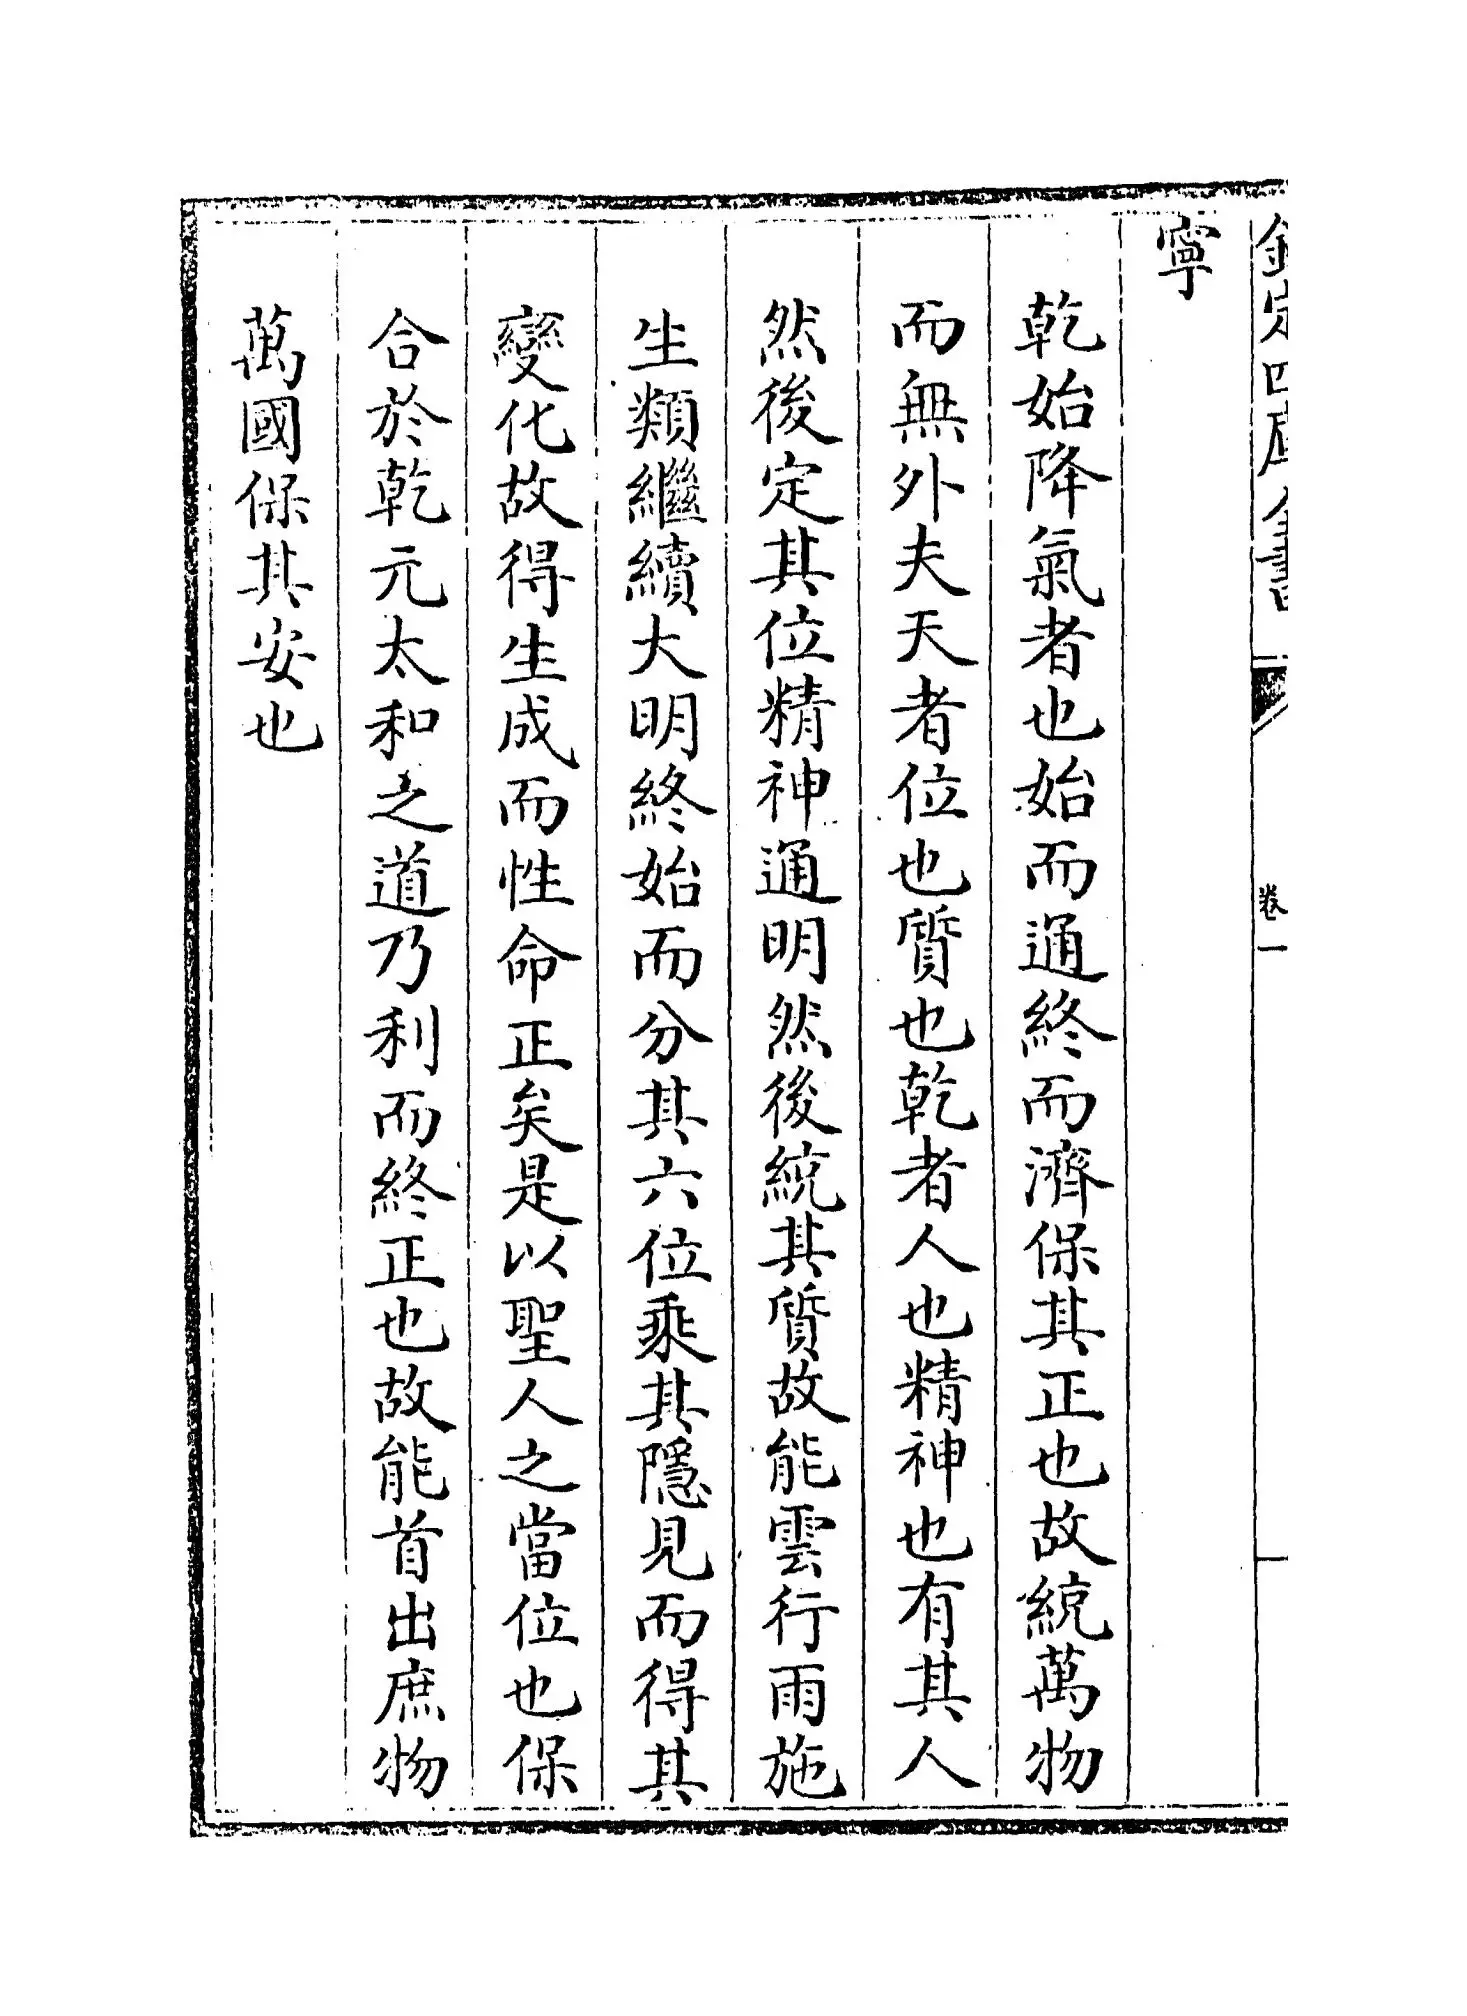 欽定四庫全書
卷一
寧
乾始降氣者也始而通終而濟保其正也故統萬物
而無外夫天者位也質也乾者人也精神也有其人
然後定其位精神通明然後統其質故能雲行雨施
生類繼續大明終始而分其六位乘其隱見而得其
變化故得生成而性命正矣是以聖人之當位也保
合於乾元太和之道乃利而終正也故能首出庶物
萬國保其安也